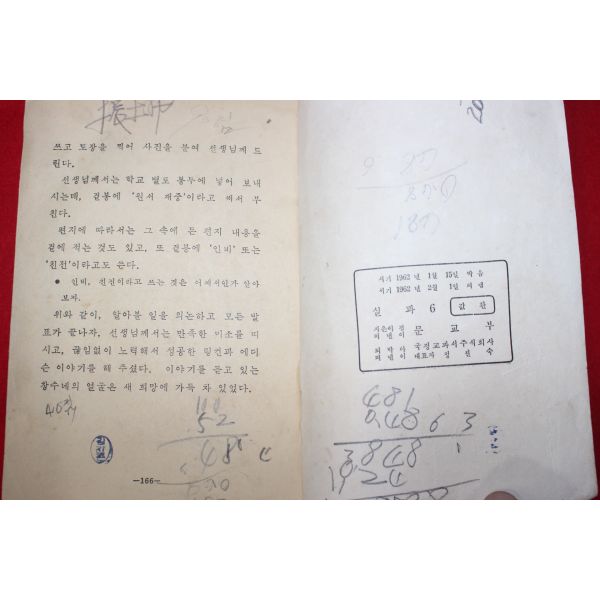 쓰고 도장을 찍어 사진을 붙여 선생님께 드
린다.
선생님께서는 학교 별로 봉투에 넣어 보내
시는데, 겉봉에 '원서 재중'이라고 써서 부
친다.
편지에 따라서는 그 속에 든 편지 내용을
겉에 적는 것도 있고, 또 겉봉에 '인비' 또는
'친전'이라고도 쓴다.
● 인비, 친전이라고 쓰는 것은 어째서인가 알아
보자.
위와 같이, 알아볼 일을 의논하고 모든 발
표가 끝나자, 선생님께서는 만족한 미소를 띠
시고, 끊임없이 노력해서 성공한 링컨과 에디
슨 이야기를 해 주셨다. 이야기를 듣고 있는
창수네의 얼굴은 새 희망에 가득 차 있었다.
100
52
48
—166—
서기 1962 년 1월 15일 박음
서기 1962 년 2월 1일 펴냄
실 과 6
값 환
지은이 겸
펴낸이 문 교 부
박아
펴낸이 국정교과서주식회사
대표자 정 진 숙
481
3848
1924